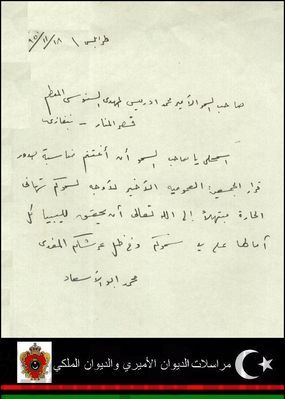 طرابلس \ ١٨/١١/٩٥٠
صاحب السمو الأمير محمد ادريس المهدي السنوسي المعظم
قصر المنار - بنغازي
اسمحلي يا صاحب السمو أن أغتنم مناسبة صدور
قرار الجمعية العمومية الأخير لأوجه لسموكم تهاني
الحارة مبتهلا إلى الله تعالى أن يحقق لليبيا كل
آمالها على يد سموكم وفي ظل عرشكم المفدى
محمد ابو الأسعاد
مراسلات الديوان الأميري والديوان الملكي